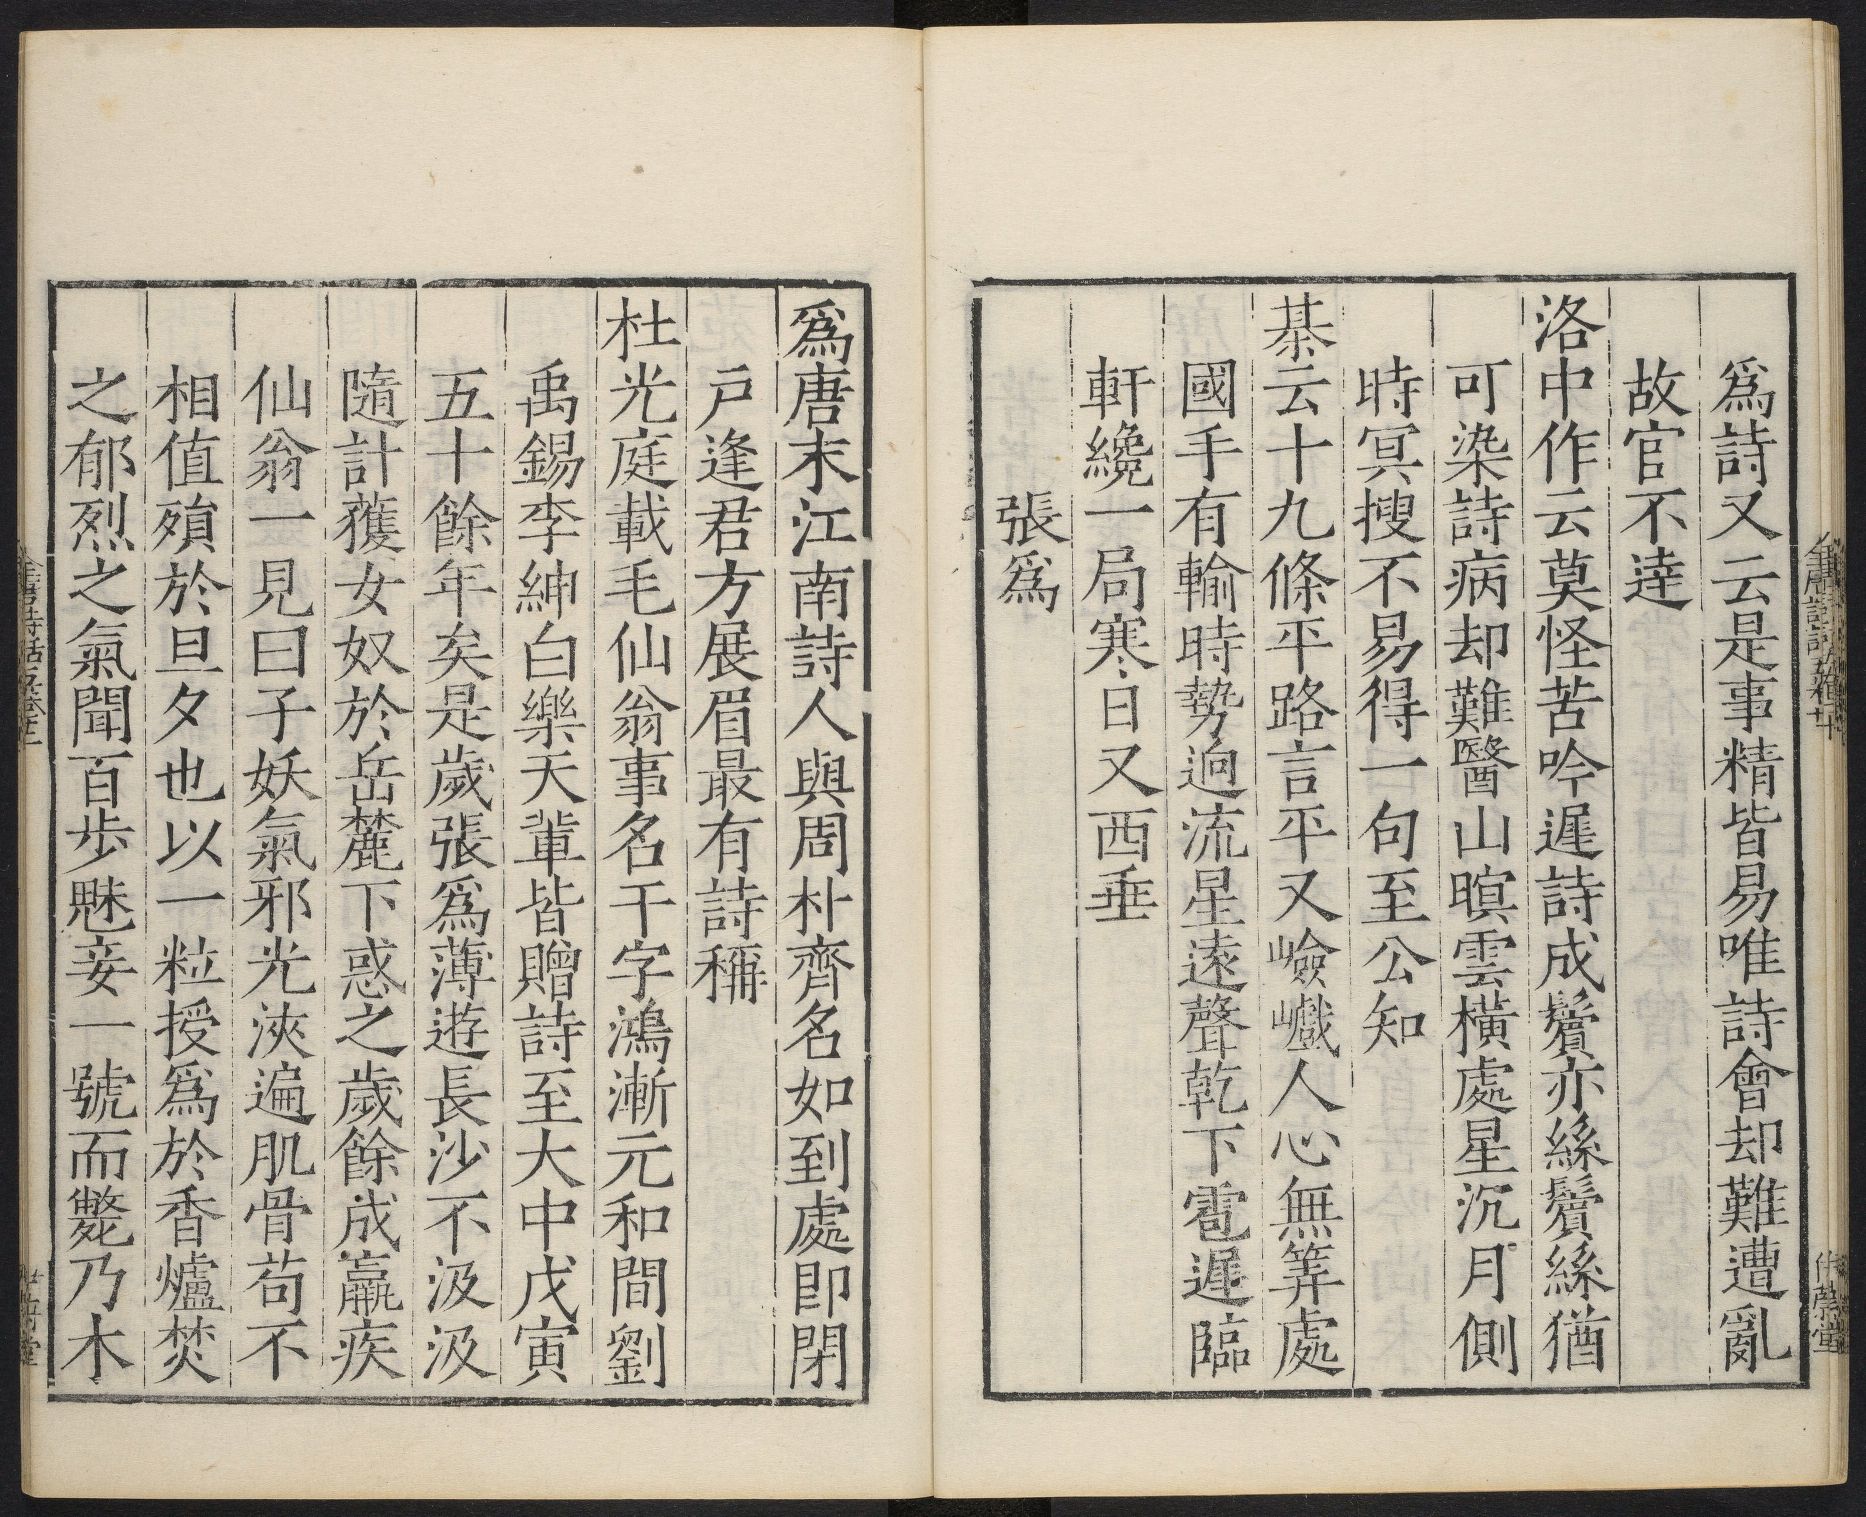 爲詩又云是事精皆易唯詩會却難遭亂
故官不達
洛中作云莫怪苦吟遲詩成鬢亦絲鬢絲猶
可染詩病却難醫山暝雲橫處星沉月側
時冥搜不易得一句至公知
棊云十九條平路言平又嶮巇人心無筭處
國手有輸時勢逈流星遠聲乾下雹遲臨
軒纔一局寒日又西垂
張爲
爲唐末江南詩人與周朴齊名如到處即閉
戸逢君方展眉最有詩稱
杜光庭載毛仙翁事名干字鴻漸元和間劉
禹錫李紳白樂天輩皆贈詩至大中戊寅
五十餘年矣是歲張爲薄遊長沙不汲汲
隨計獲女奴於岳麓下惑之歲餘成羸疾
仙翁一見曰子妖氣邪光浹遍肌骨苟不
相值殞於旦夕也以一粒授爲於香爐焚
之郁烈之氣聞百步魅妾一號而斃乃木